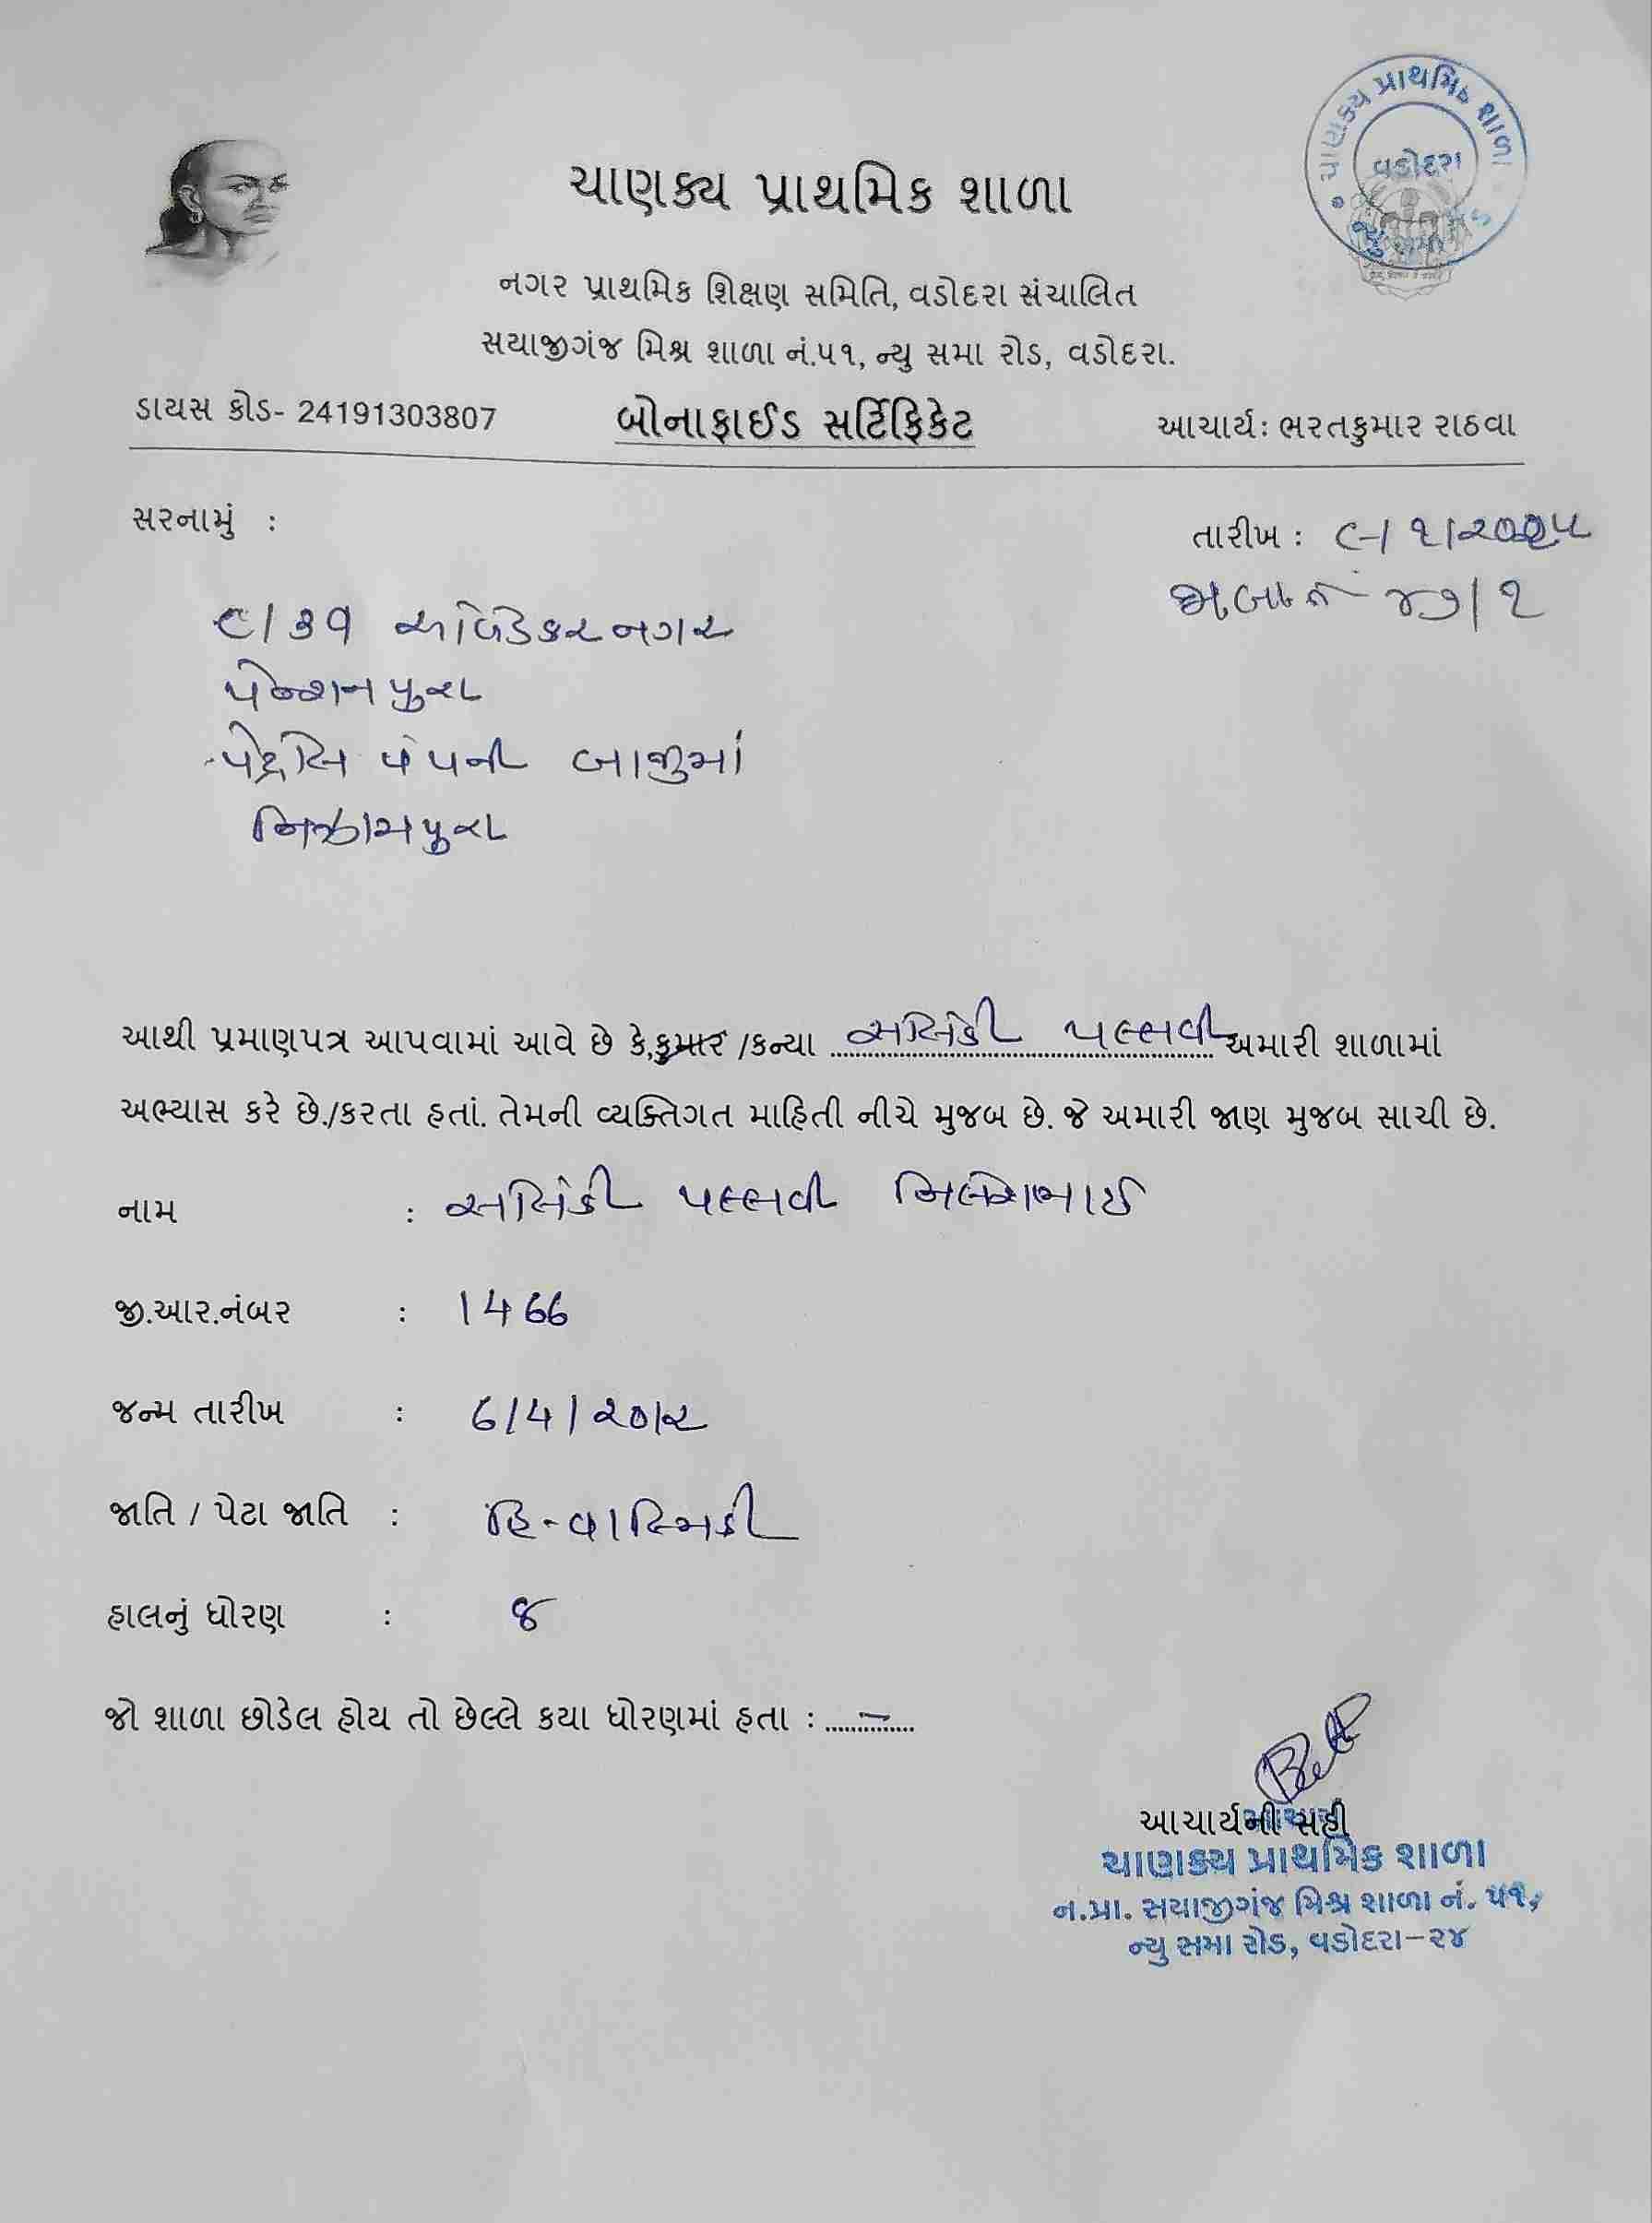 ચાણક્ય પ્રાથમિક શાળા
વડોદરા
ચાણક્ય પ્રાથમિક શાળા
નગર પ્રાથમિક શિક્ષણ સમિતિ, વડોદરા સંચાલિત
સયાજીગંજ મિશ્ર શાળા નં.૫૧, ન્યુ સમા રોડ, વડોદરા.
ડાયસ કોડ- 24191303807 બોનાફાઈડ સર્ટિફિકેટ આચાર્ય: ભરતકુમાર રાઠવા
સરનામું : તારીખ : ૯/૧/૨૦૨૫
આંબેડકરનગર
પેન્શનપુરા
પંપની બાજુમાં
નિઝામપુરા
આથી પ્રમાણપત્ર આપવામાં આવે છે કે,કુમાર /કન્યા સોલંકી પલ્લવી અમારી શાળામાં
અભ્યાસ કરે છે./કરતા હતાં. તેમની વ્યક્તિગત માહિતી નીચે મુજબ છે. જે અમારી જાણ મુજબ સાચી છે.
નામ : સોલંકી પલ્લવી નિલેશભાઈ
જી.આર.નંબર : 1466
જન્મ તારીખ : 6/4/૨૦૧૨
જાતિ / પેટા જાતિ : હિ-વાલ્મિકી
હાલનું ધોરણ : ૪
જો શાળા છોડેલ હોય તો છેલ્લે કયા ધોરણમાં હતા : –
આચાર્યની સહી
ચાણક્ય પ્રાથમિક શાળા
ન.પ્રા. સયાજીગંજ મિશ્ર શાળા નં. ૫૧,
ન્યુ સમા રોડ, વડોદરા-૨૪